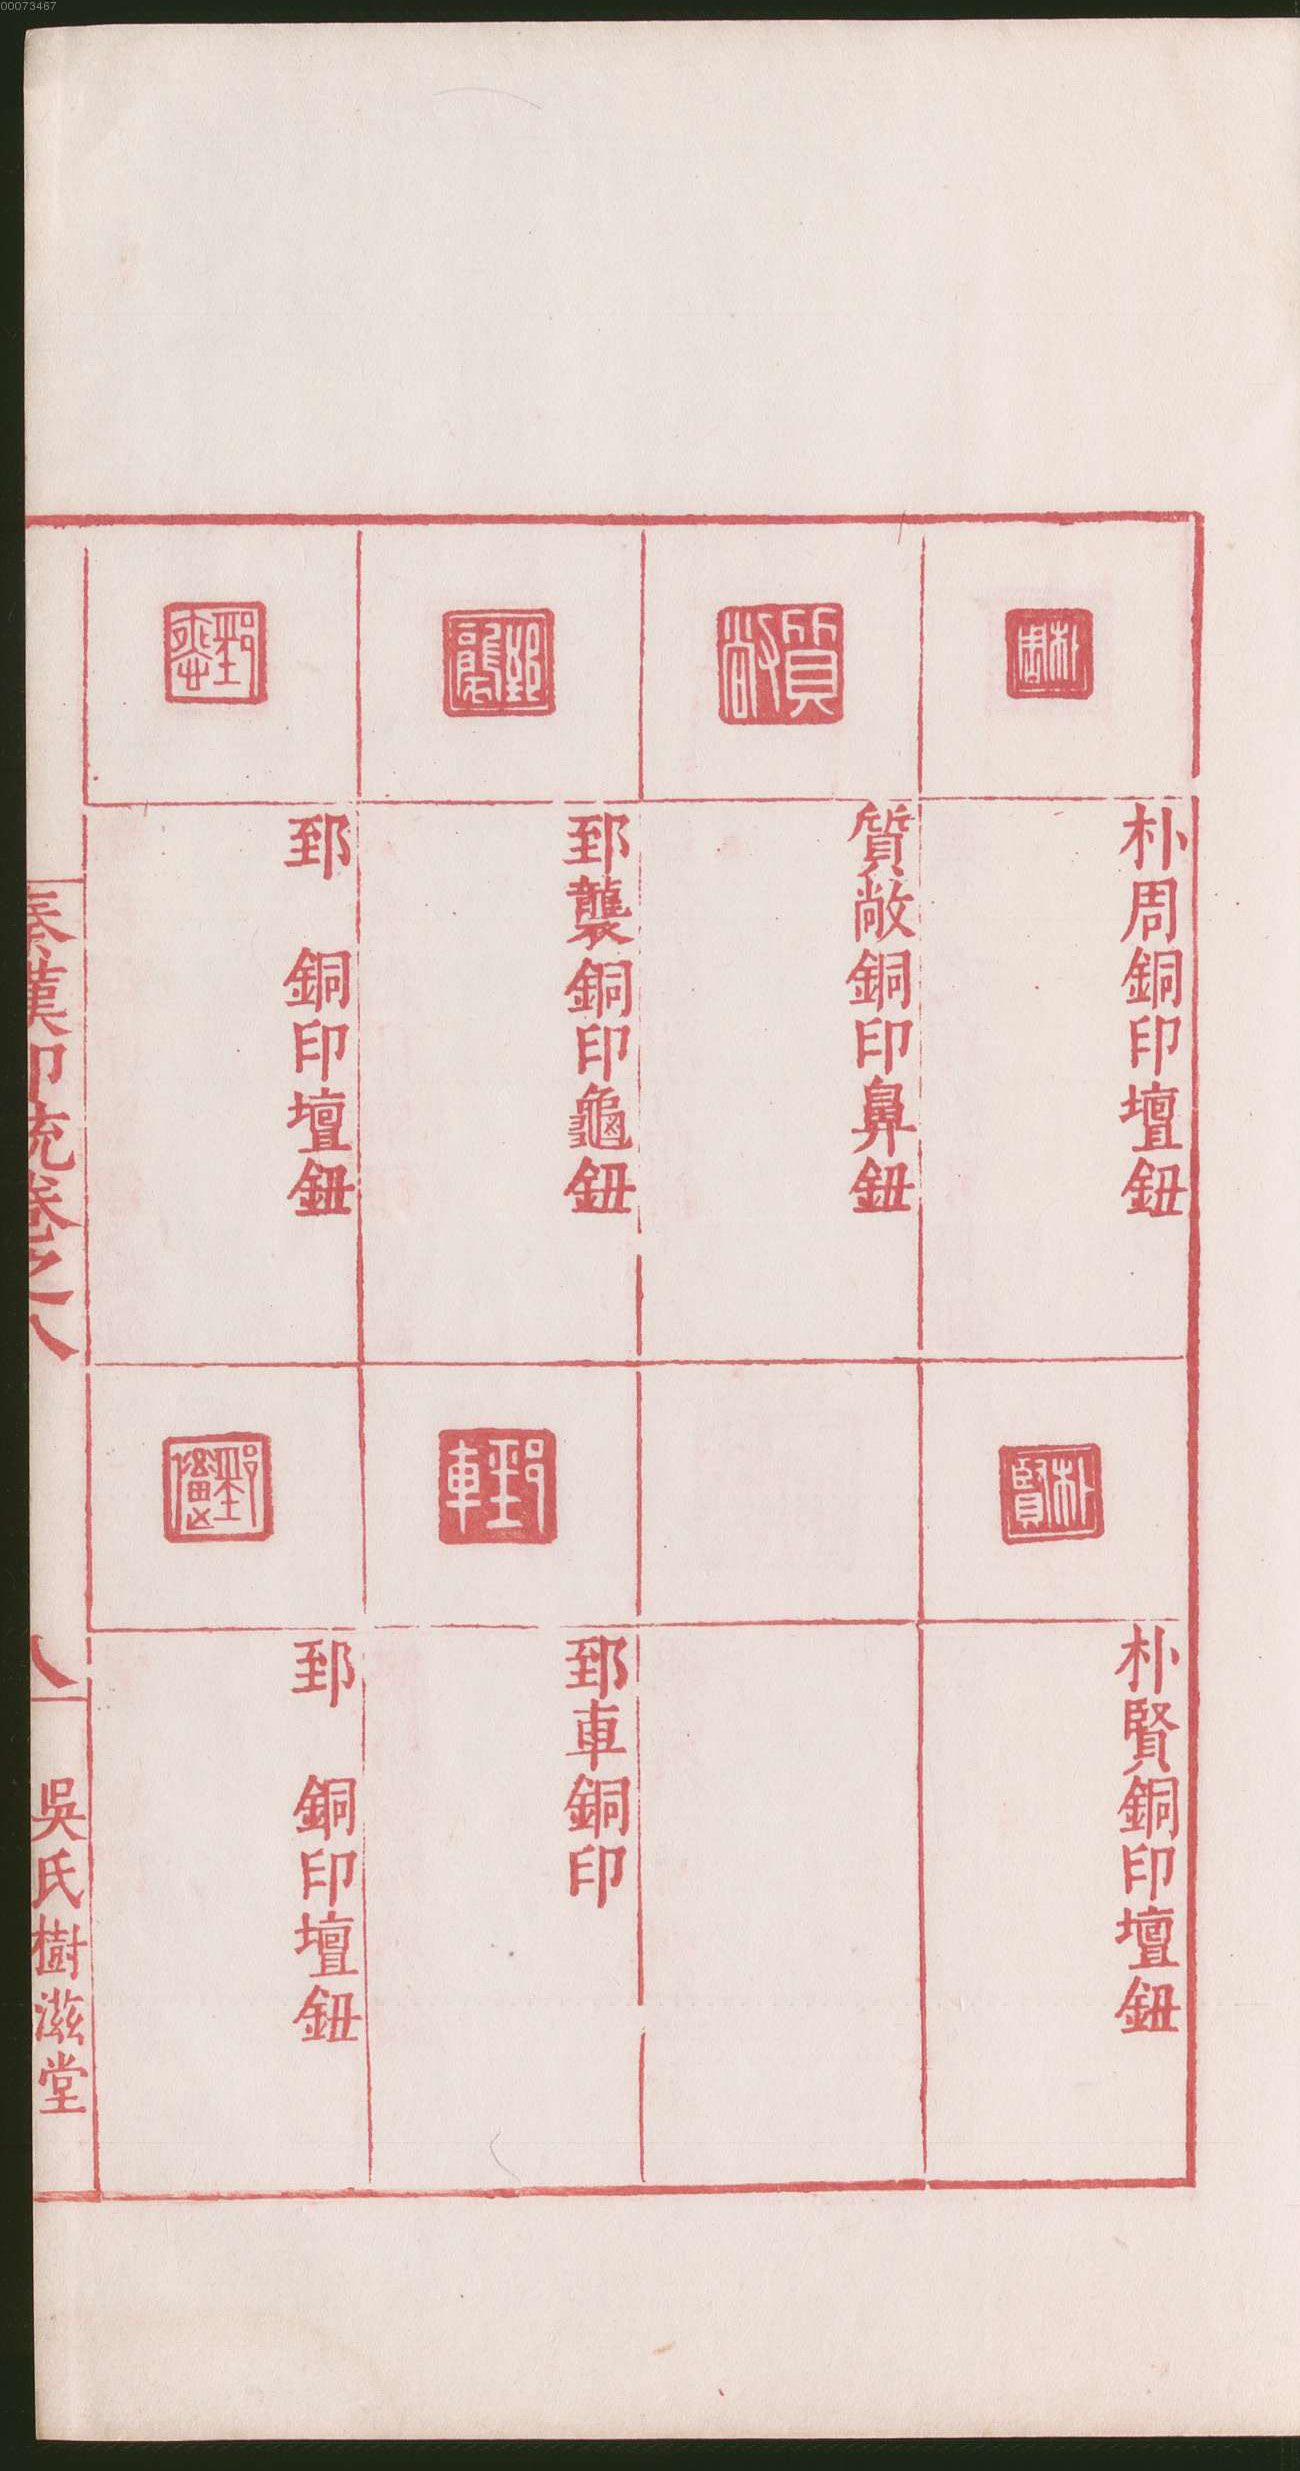 00073467
朴周
朴周銅印壇鈕
質敞
質敞銅印鼻鈕
郅襲
郅襲銅印龜鈕
郅
郅　銅印壇鈕
朴賢
朴賢銅印壇鈕
郅車
郅車銅印
郅
郅　銅印壇鈕
秦漢印統卷之八
八
吳氏樹滋堂